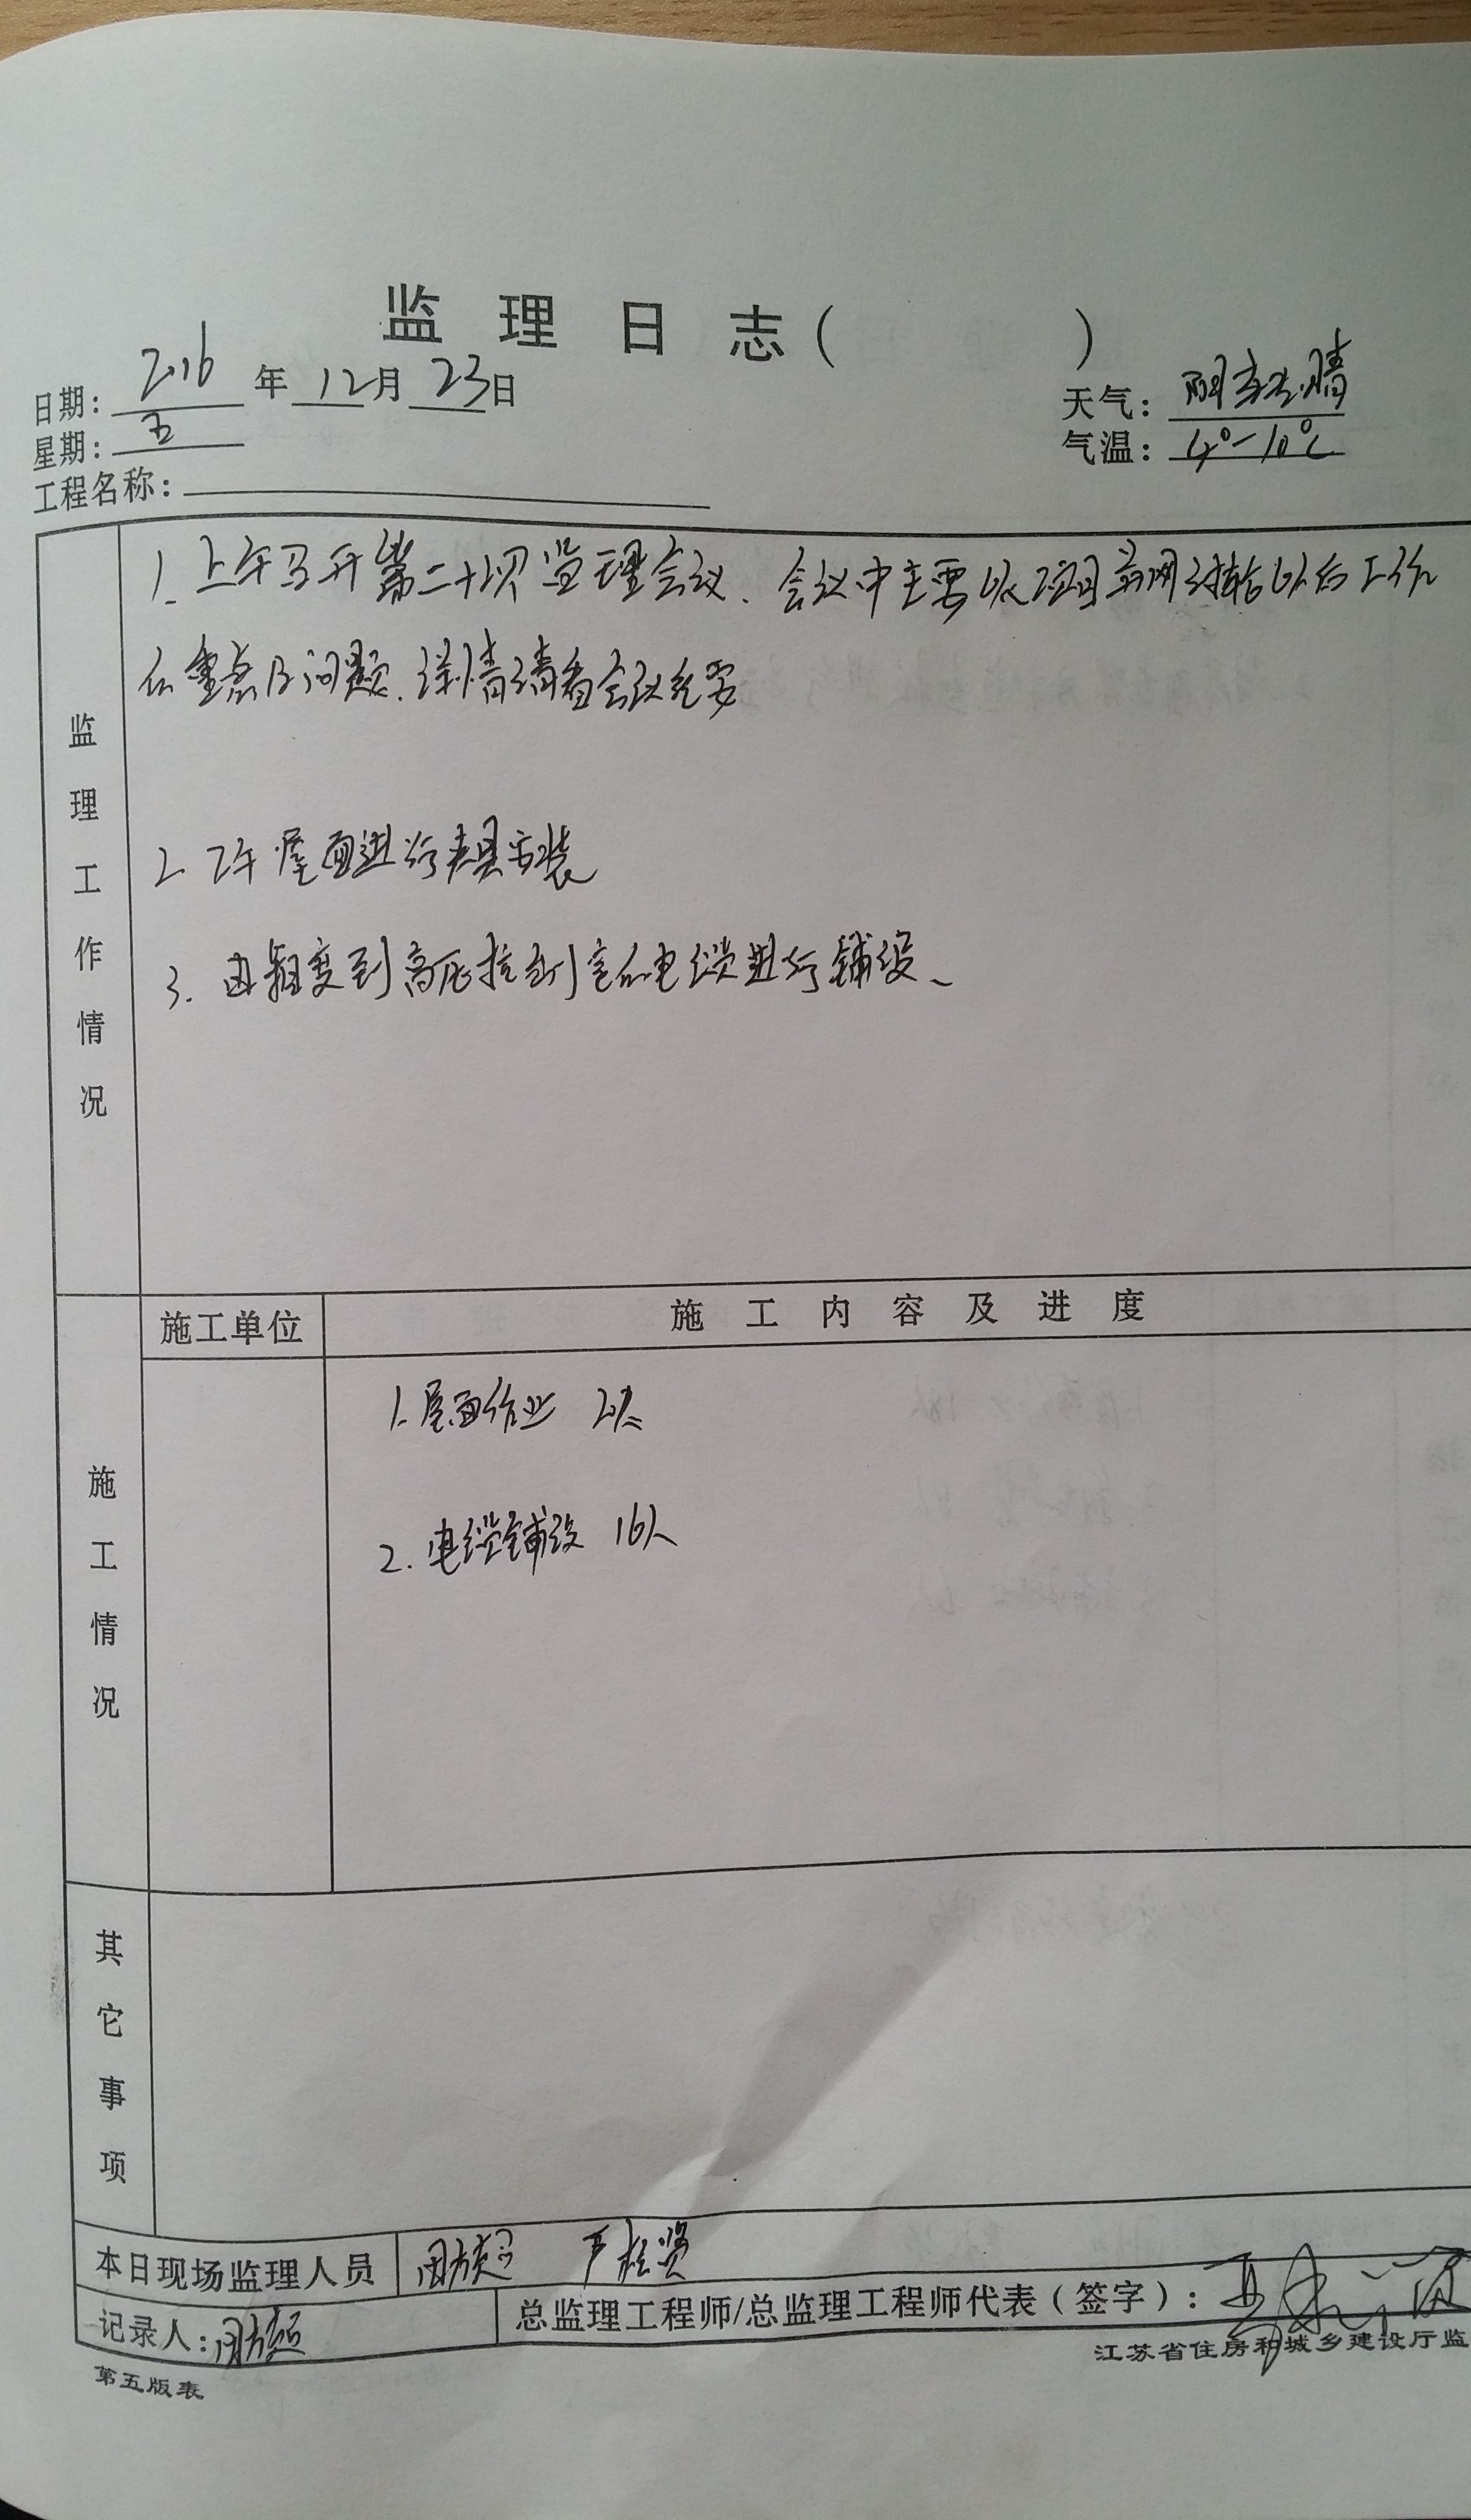 监理日志( )
日期: 2016 年 12 月 23 日
天气: 阴转晴
星期: 五
气温: 4°-10℃
工程名称:
监理工作情况
1. 上午召开第二十次监理会议、会议中主要以项目并网讨论以后工作
的重点及问题.详情请看会议纪要
2. 下午屋面进行夹具安装
3. 由箱变到高压控制室的电缆进行铺设、
施工单位
施工内容及进度
施工情况
1. 屋面作业
2. 电缆铺设 16人
其它事项
本日现场监理人员 周放超 严桂贤
记录人: 周放超
总监理工程师/总监理工程师代表(签字):
江苏省住房和城乡建设厅监
第五版表